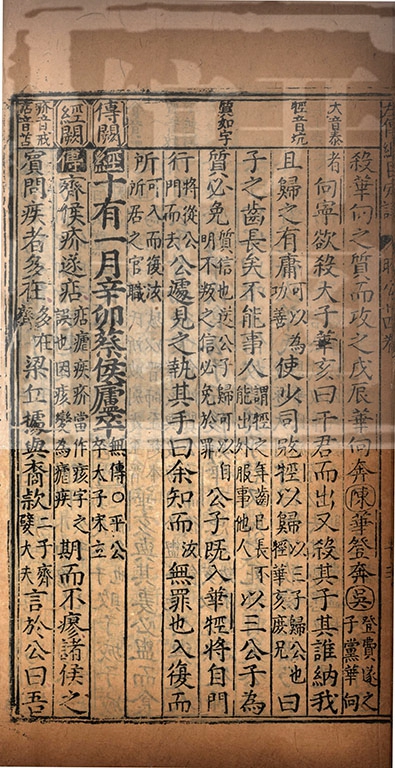 殺華向之質而攻之戊辰華向奔陳華登奔吳登費遂之子黨華向
大音泰
者向寧欲殺大子華亥曰干君而出又殺其子其誰納我
牼音坑
且歸之有庸可以為功善使少司寇牼以歸以三子歸公也牼華亥庶兄曰
子之齒長矣不能事人謂牼之年齒已長不能出外服事他人以三公子為
質如字
質必免質信也送公子歸可以自明不叛之信必免於罪公子既入華牼將自門
行將從公門而去公遽見之執其手曰余知而汝無罪也入復而
所可入而復汝所居之官職
傳闕
經十有一月辛卯蔡侯廬卒無傳○平公卒太子宋立
經闕
傳齊侯疥遂痁痁瘧疾疥當作痎字之誤也因痎變為瘧疾期而不瘳諸侯之
疥音戒痁音苫
賓問疾者多在多在齊梁丘據與裔款二子齊嬖大夫言於公曰吾